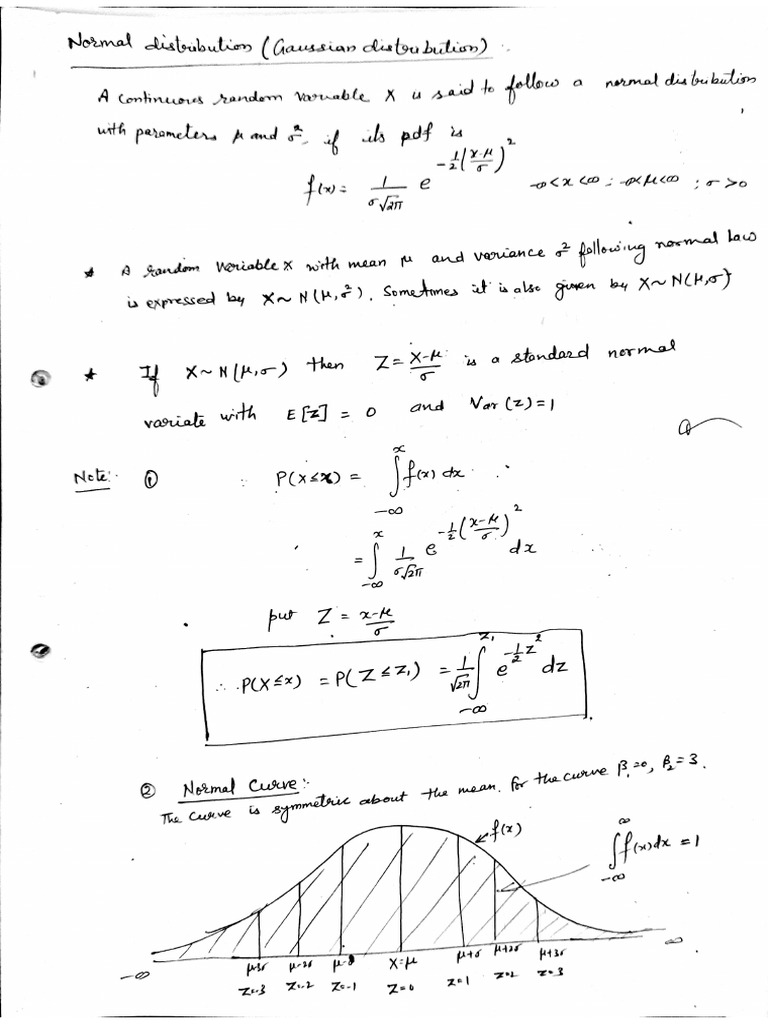 Normal distribution (Gaussian distribution) :-
A continuous random variable X is said to follow a normal distribution
with parameters μ and σ², if its pdf is
f(x) = 1/(σ√2π) e^{-1/2((x-μ)/σ)²} -∞<x<∞ ; -∞<μ<∞ ; σ>0
* A random variable X with mean μ and variance σ² following normal law
is expressed by X~N(μ,σ²). Sometimes it is also given by X~N(μ,σ)
* If X~N(μ,σ) then Z = (X-μ)/σ is a standard normal
variate with E[Z] = 0 and Var(Z)=1
Note:- ① P(X≤x) = ∫_{-∞}^{x} f(x) dx
= ∫_{-∞}^{x} 1/(σ√2π) e^{-1/2((x-μ)/σ)²} dx
put Z = (x-μ)/σ
∴ P(X≤x) = P(Z≤Z₁) = 1/√2π ∫_{-∞}^{Z₁} e^{-1/2 Z²} dz
② Normal Curve:-
The curve is symmetric about the mean. for the curve β₁=0, β₂=3.
f(x)
∫_{-∞}^{∞} f(x)dx = 1
-∞ μ-3σ μ-2σ μ-σ X=μ μ+σ μ+2σ μ+3σ ∞
Z=-3 Z=-2 Z=-1 Z=0 Z=1 Z=2 Z=3